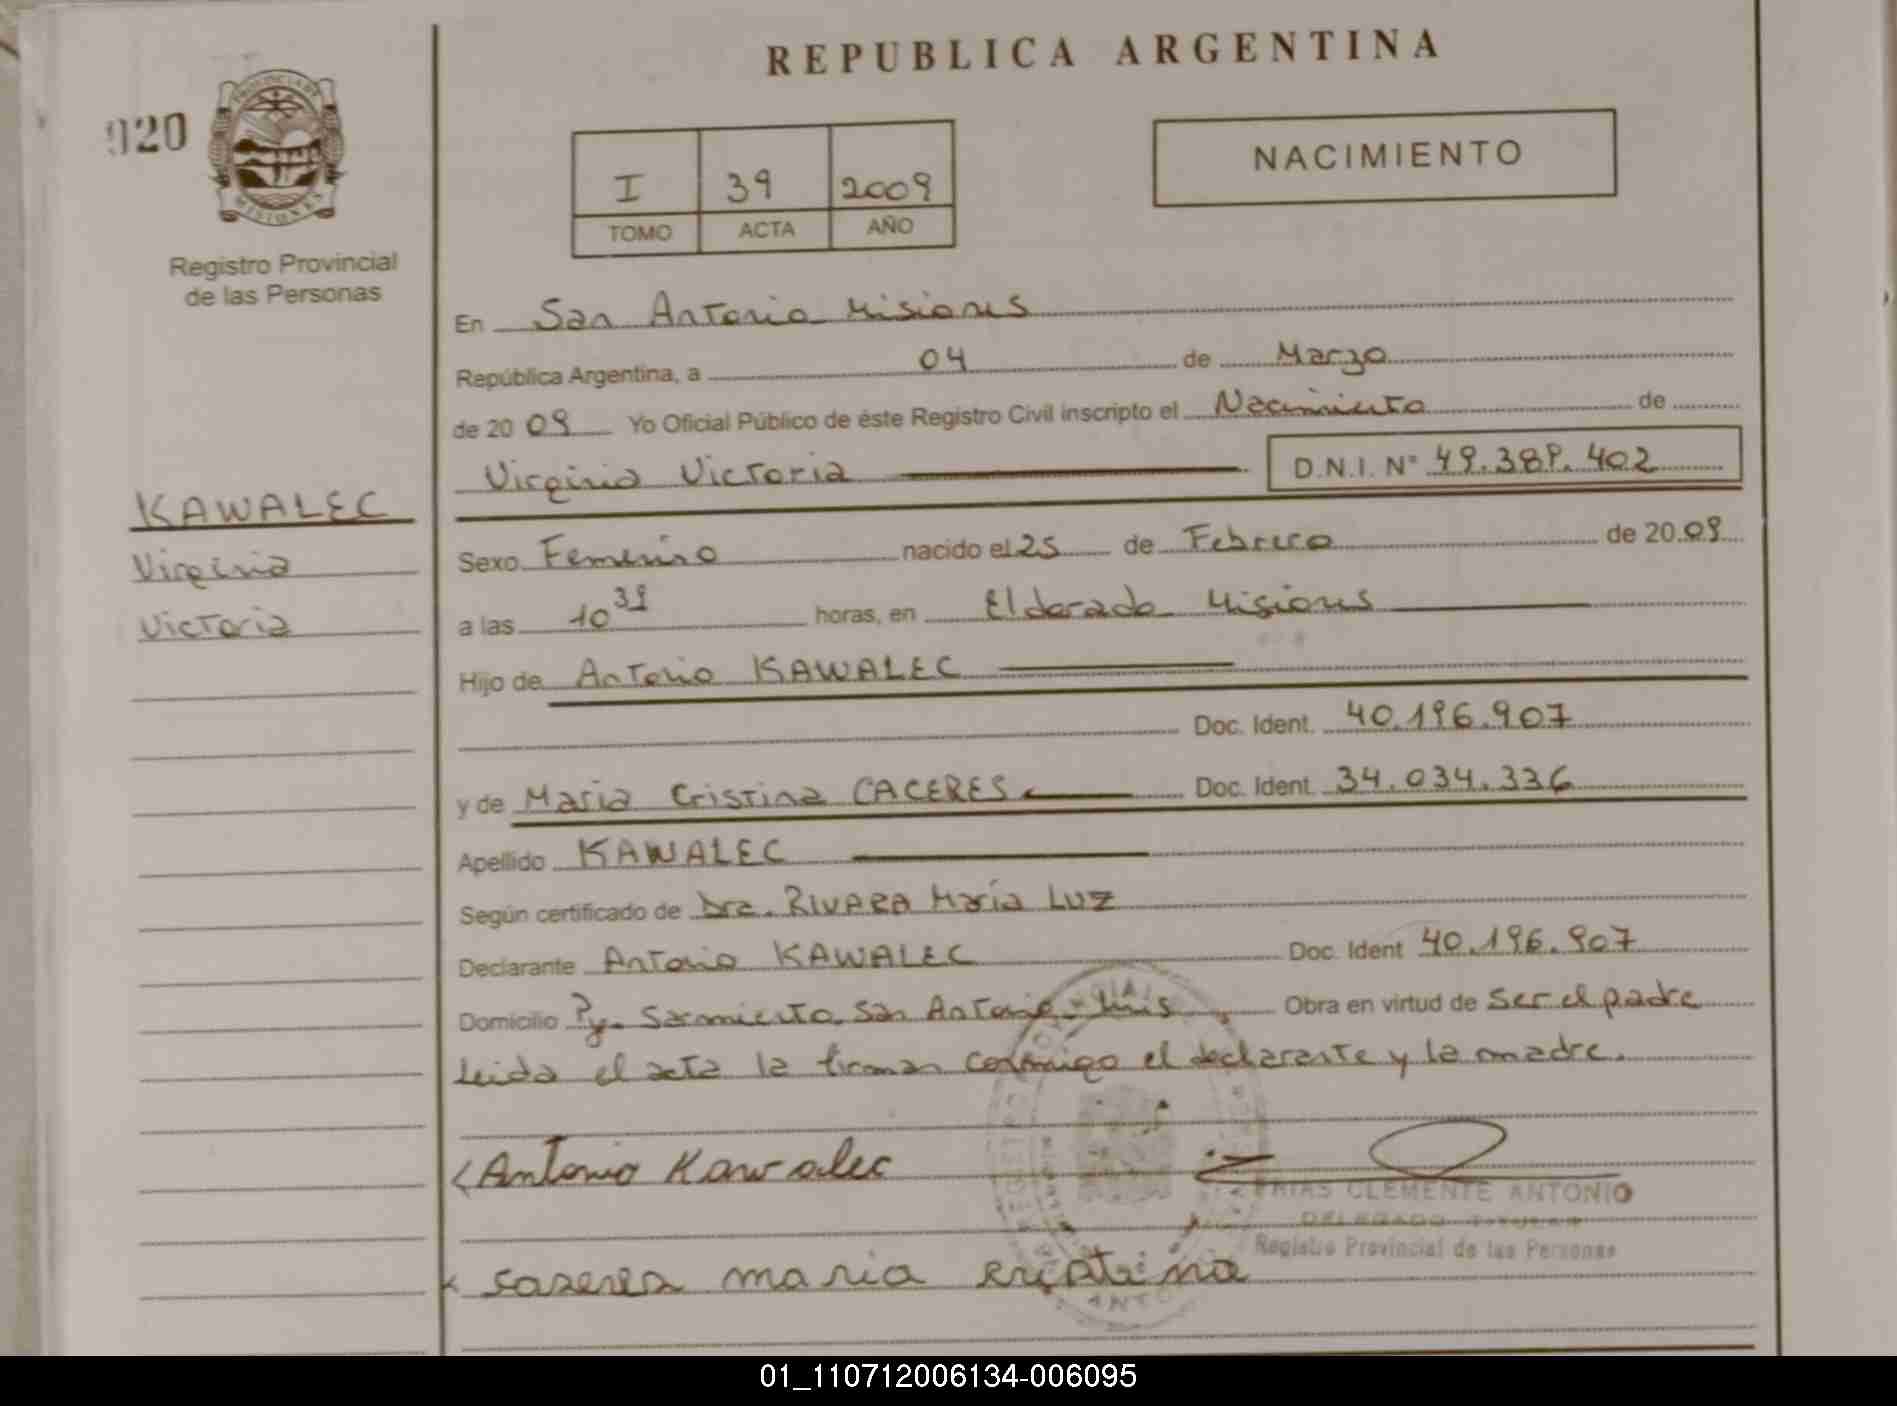 REPUBLICA ARGENTINA
920
PROVINCIA DE
MISIONES
Registro Provincial
de las Personas
NACIMIENTO
I 39 2009
TOMO ACTA AÑO
En San Antonio Misiones
República Argentina, a 04 de Marzo
de 20 09 Yo Oficial Público de éste Registro Civil inscripto el Nacimiento de
Virginia Victoria D.N.I. N° 49.389.402
KAWALEC
Virginia
Victoria
Sexo Femenino nacido el 25 de Febrero de 20.09
a las 10 39 horas, en Eldorado Misiones
Hijo de Antonio KAWALEC
Doc. Ident. 40.196.907
y de Maria Cristina CACERES Doc. Ident. 34.034.336
Apellido KAWALEC
Según certificado de Dra. RIVARA María LUZ
Declarante Antonio KAWALEC Doc. Ident 40.196.907
Domicilio Py. Sarmiento San Antonio - Mis Obra en virtud de ser el padre
Leida el acta la firman conmigo el declarante y la madre.
Antonio Kawalec
FRIAS CLEMENTE ANTONIO
DELEGADO TITULAR
Registro Provincial de las Personas
caseres maria cristina
01_110712006134-006095